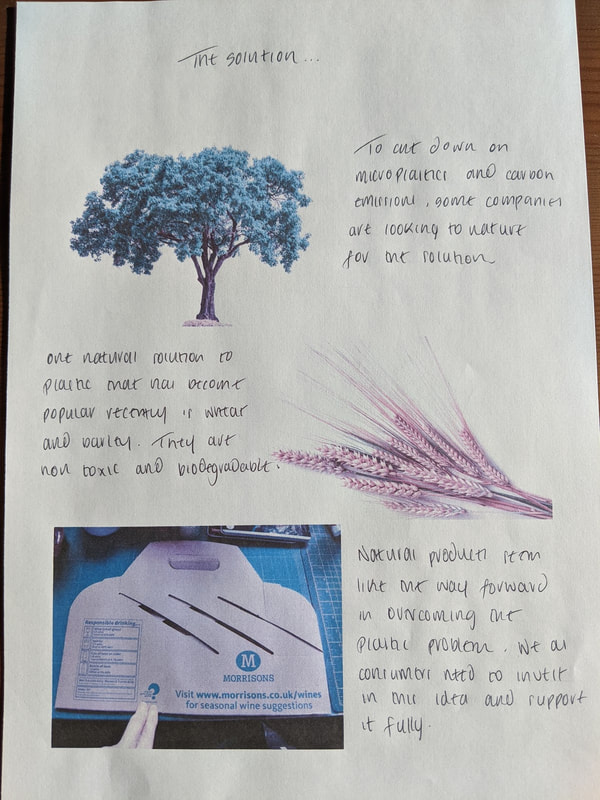 The solution...
To cut down on
microplastics and carbon
emissions, some companies
are looking to nature
for the solution
One natural solution to
plastic that has become
popular recently is wheat
and barley. They are
non toxic and biodegradable.
Responsible drinking
M
MORRISONS
Visit www.morrisons.co.uk/wines
for seasonal wine suggestions
Natural products seem
like the way forward
in overcoming the
plastic problem. We as
consumers need to invest
in this idea and support
it fully.